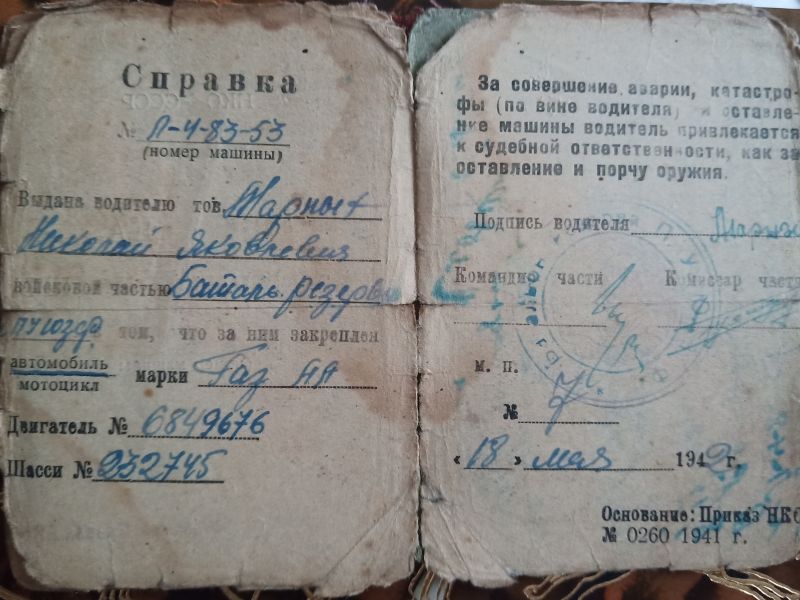 Справка
НКО СССР
№ П-4-83-53
(номер машины)
Выдана водителю тов. Марных
Николай Яковлевич
войсковой частью Батарь. резерва
ПУЮЗФ в том, что за ним закреплен
автомобиль
мотоцикл
марки Газ АА
Двигатель № 6849676
Шасси № 232745
За совершение аварии, катастро-
фы (по вине водителя) и оставле-
ние машины водитель привлекается
к судебной ответственности, как за
оставление и порчу оружия.
Подпись водителя Марных
Командир части Комиссар части
м. п.
№ 7
«18» мая 1942 г.
Основание: Приказ НКО
№ 0260 1941 г.